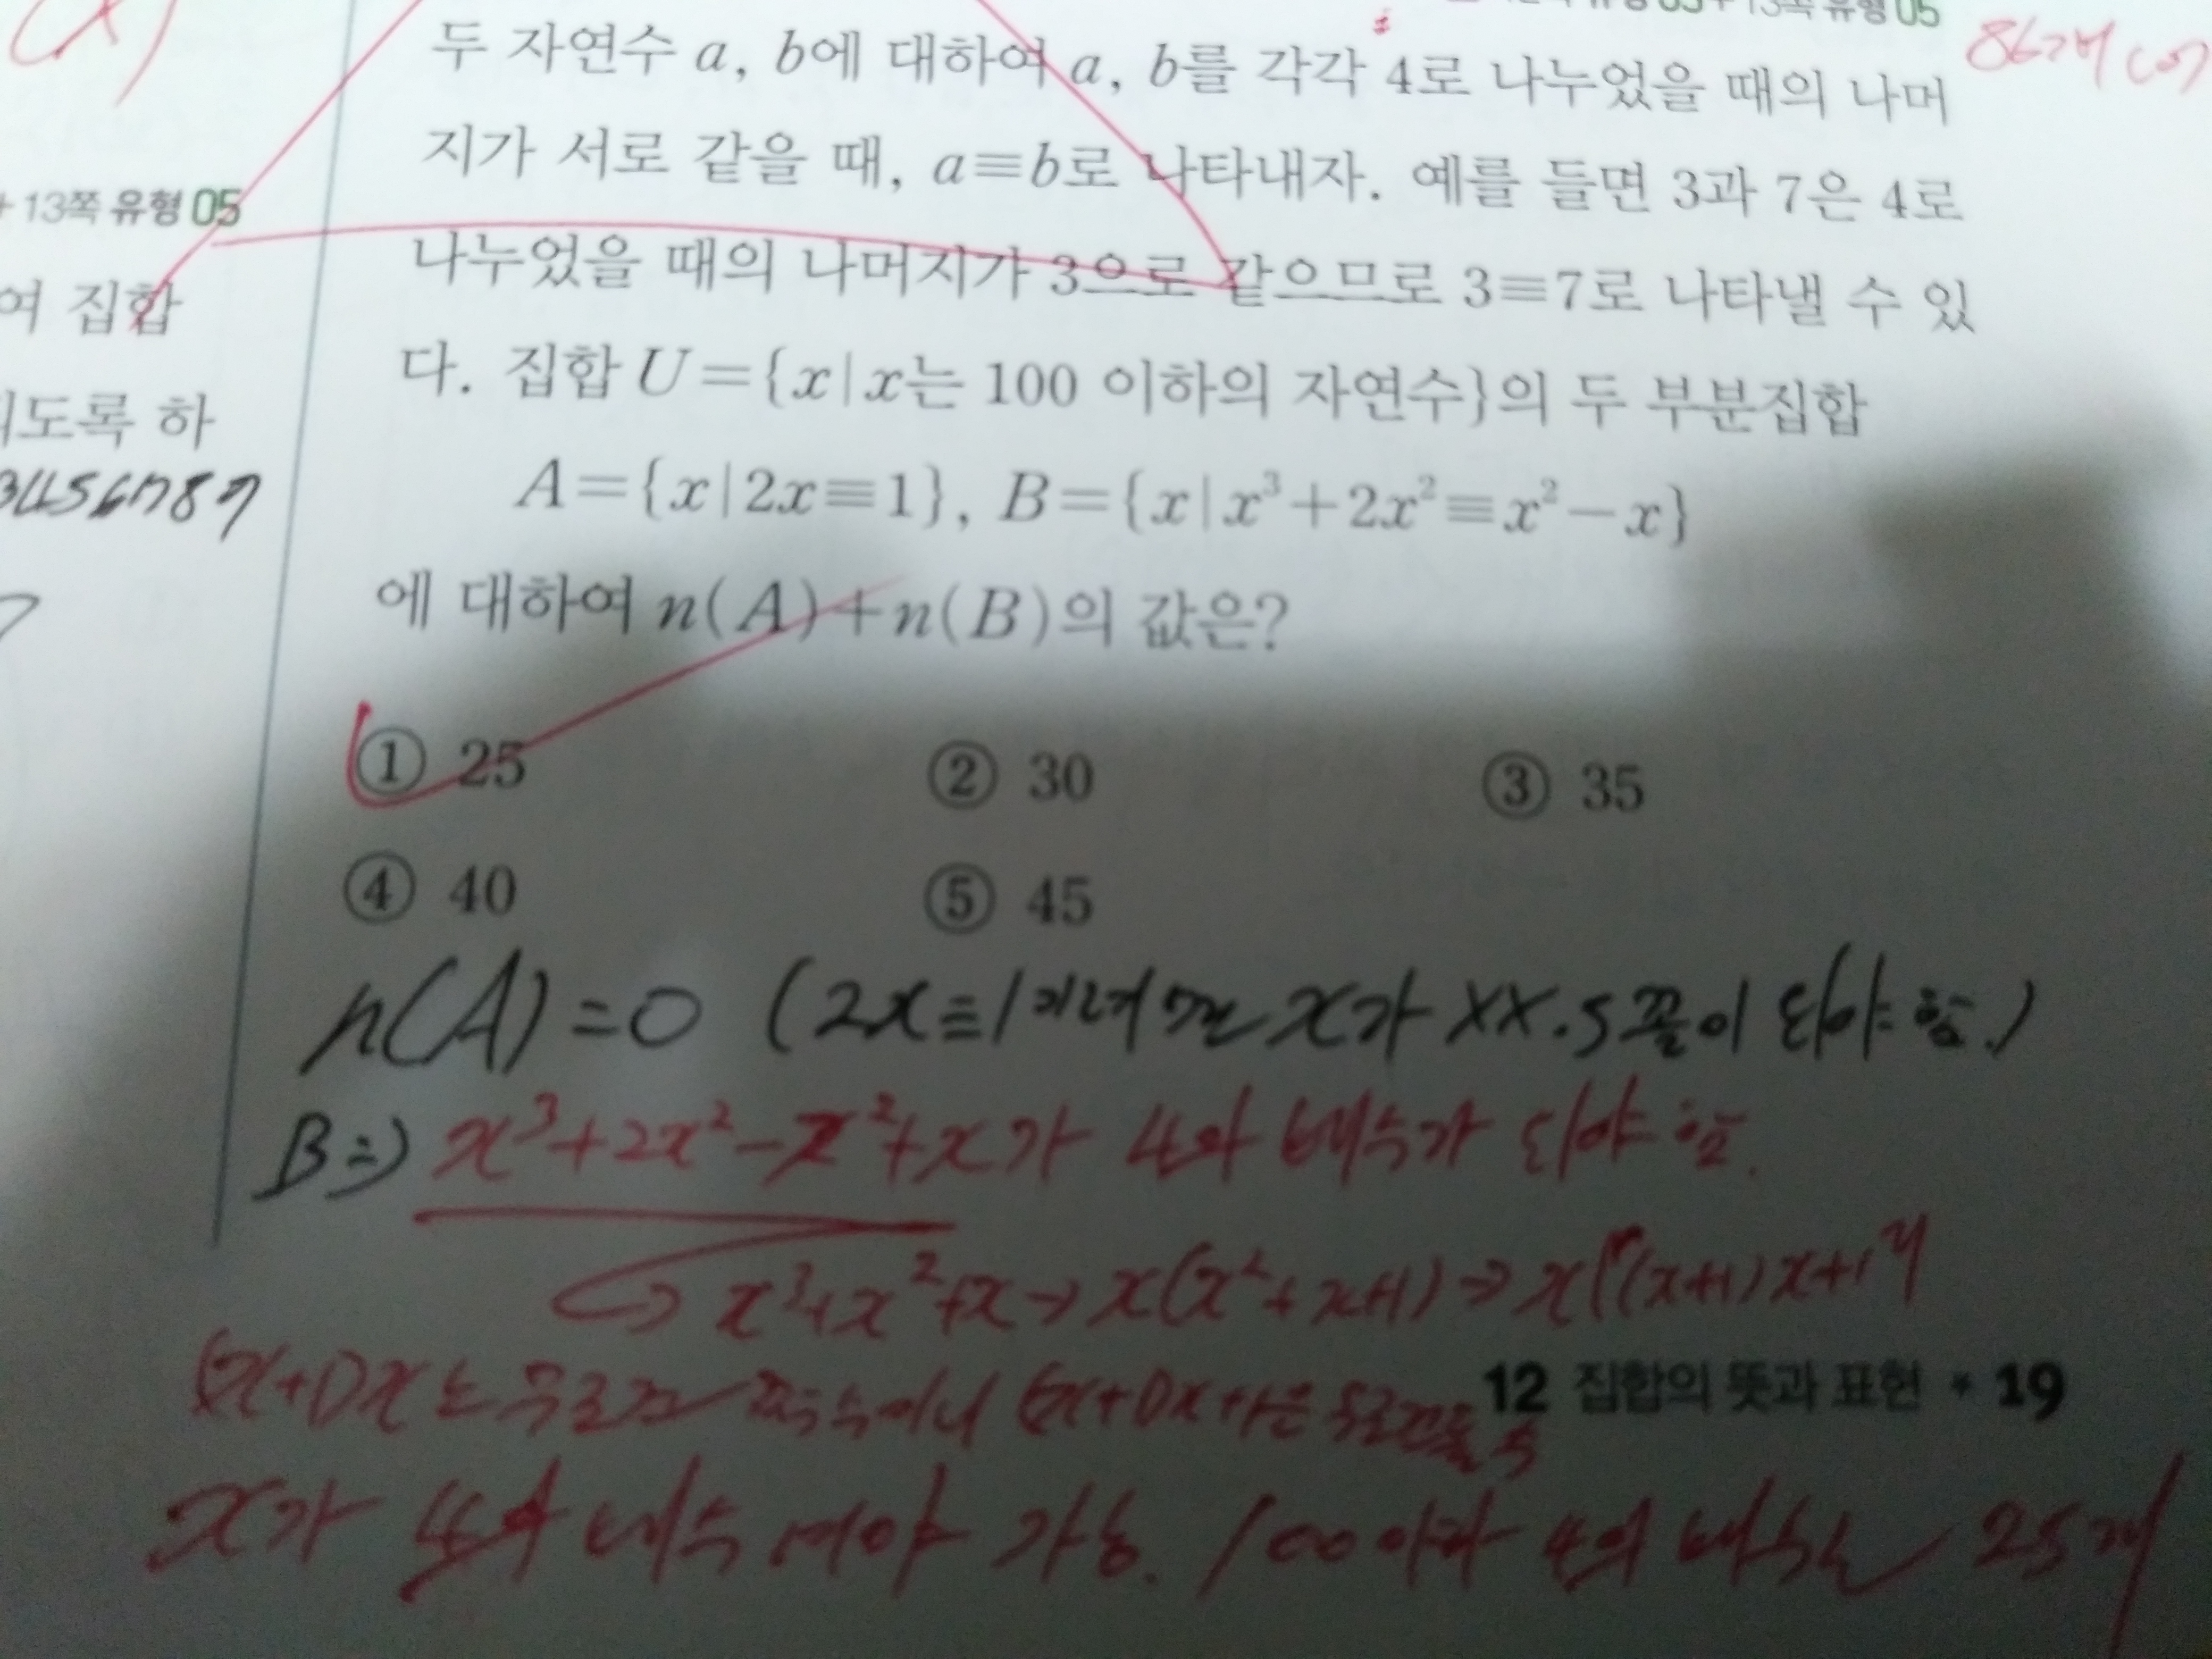 두 자연수 a, b에 대하여 a, b를 각각 4로 나누었을 때의 나머
지가 서로 같을 때, a≡b로 나타내자. 예를 들면 3과 7은 4로
나누었을 때의 나머지가 3으로 같으므로 3≡7로 나타낼 수 있
다. 집합 U={x|x는 100 이하의 자연수}의 두 부분집합
A={x|2x≡1}, B={x|x³+2x²≡x²-x}
에 대하여 n(A)+n(B)의 값은?
① 25 ② 30 ③ 35
④ 40 ⑤ 45
n(A)=0 (2x≡1이려면 x가 xx.5꼴이 되야 함.)
B⇒) x³+2x²-x²+x가 4의 배수가 되야 함.
x³+x²+x → x(x²+x+1) → x((x+1)x+1)
(x+1)x는 무조건 짝수이니 (x+1)x+1은 무조건 홀수
x가 4의 배수여야 가능. 100이하 4의 배수는 25개
12 집합의 뜻과 표현 * 19
+ 13쪽 유형 05
여 집합
되도록 하
3456789
13쪽 유형 05
86개